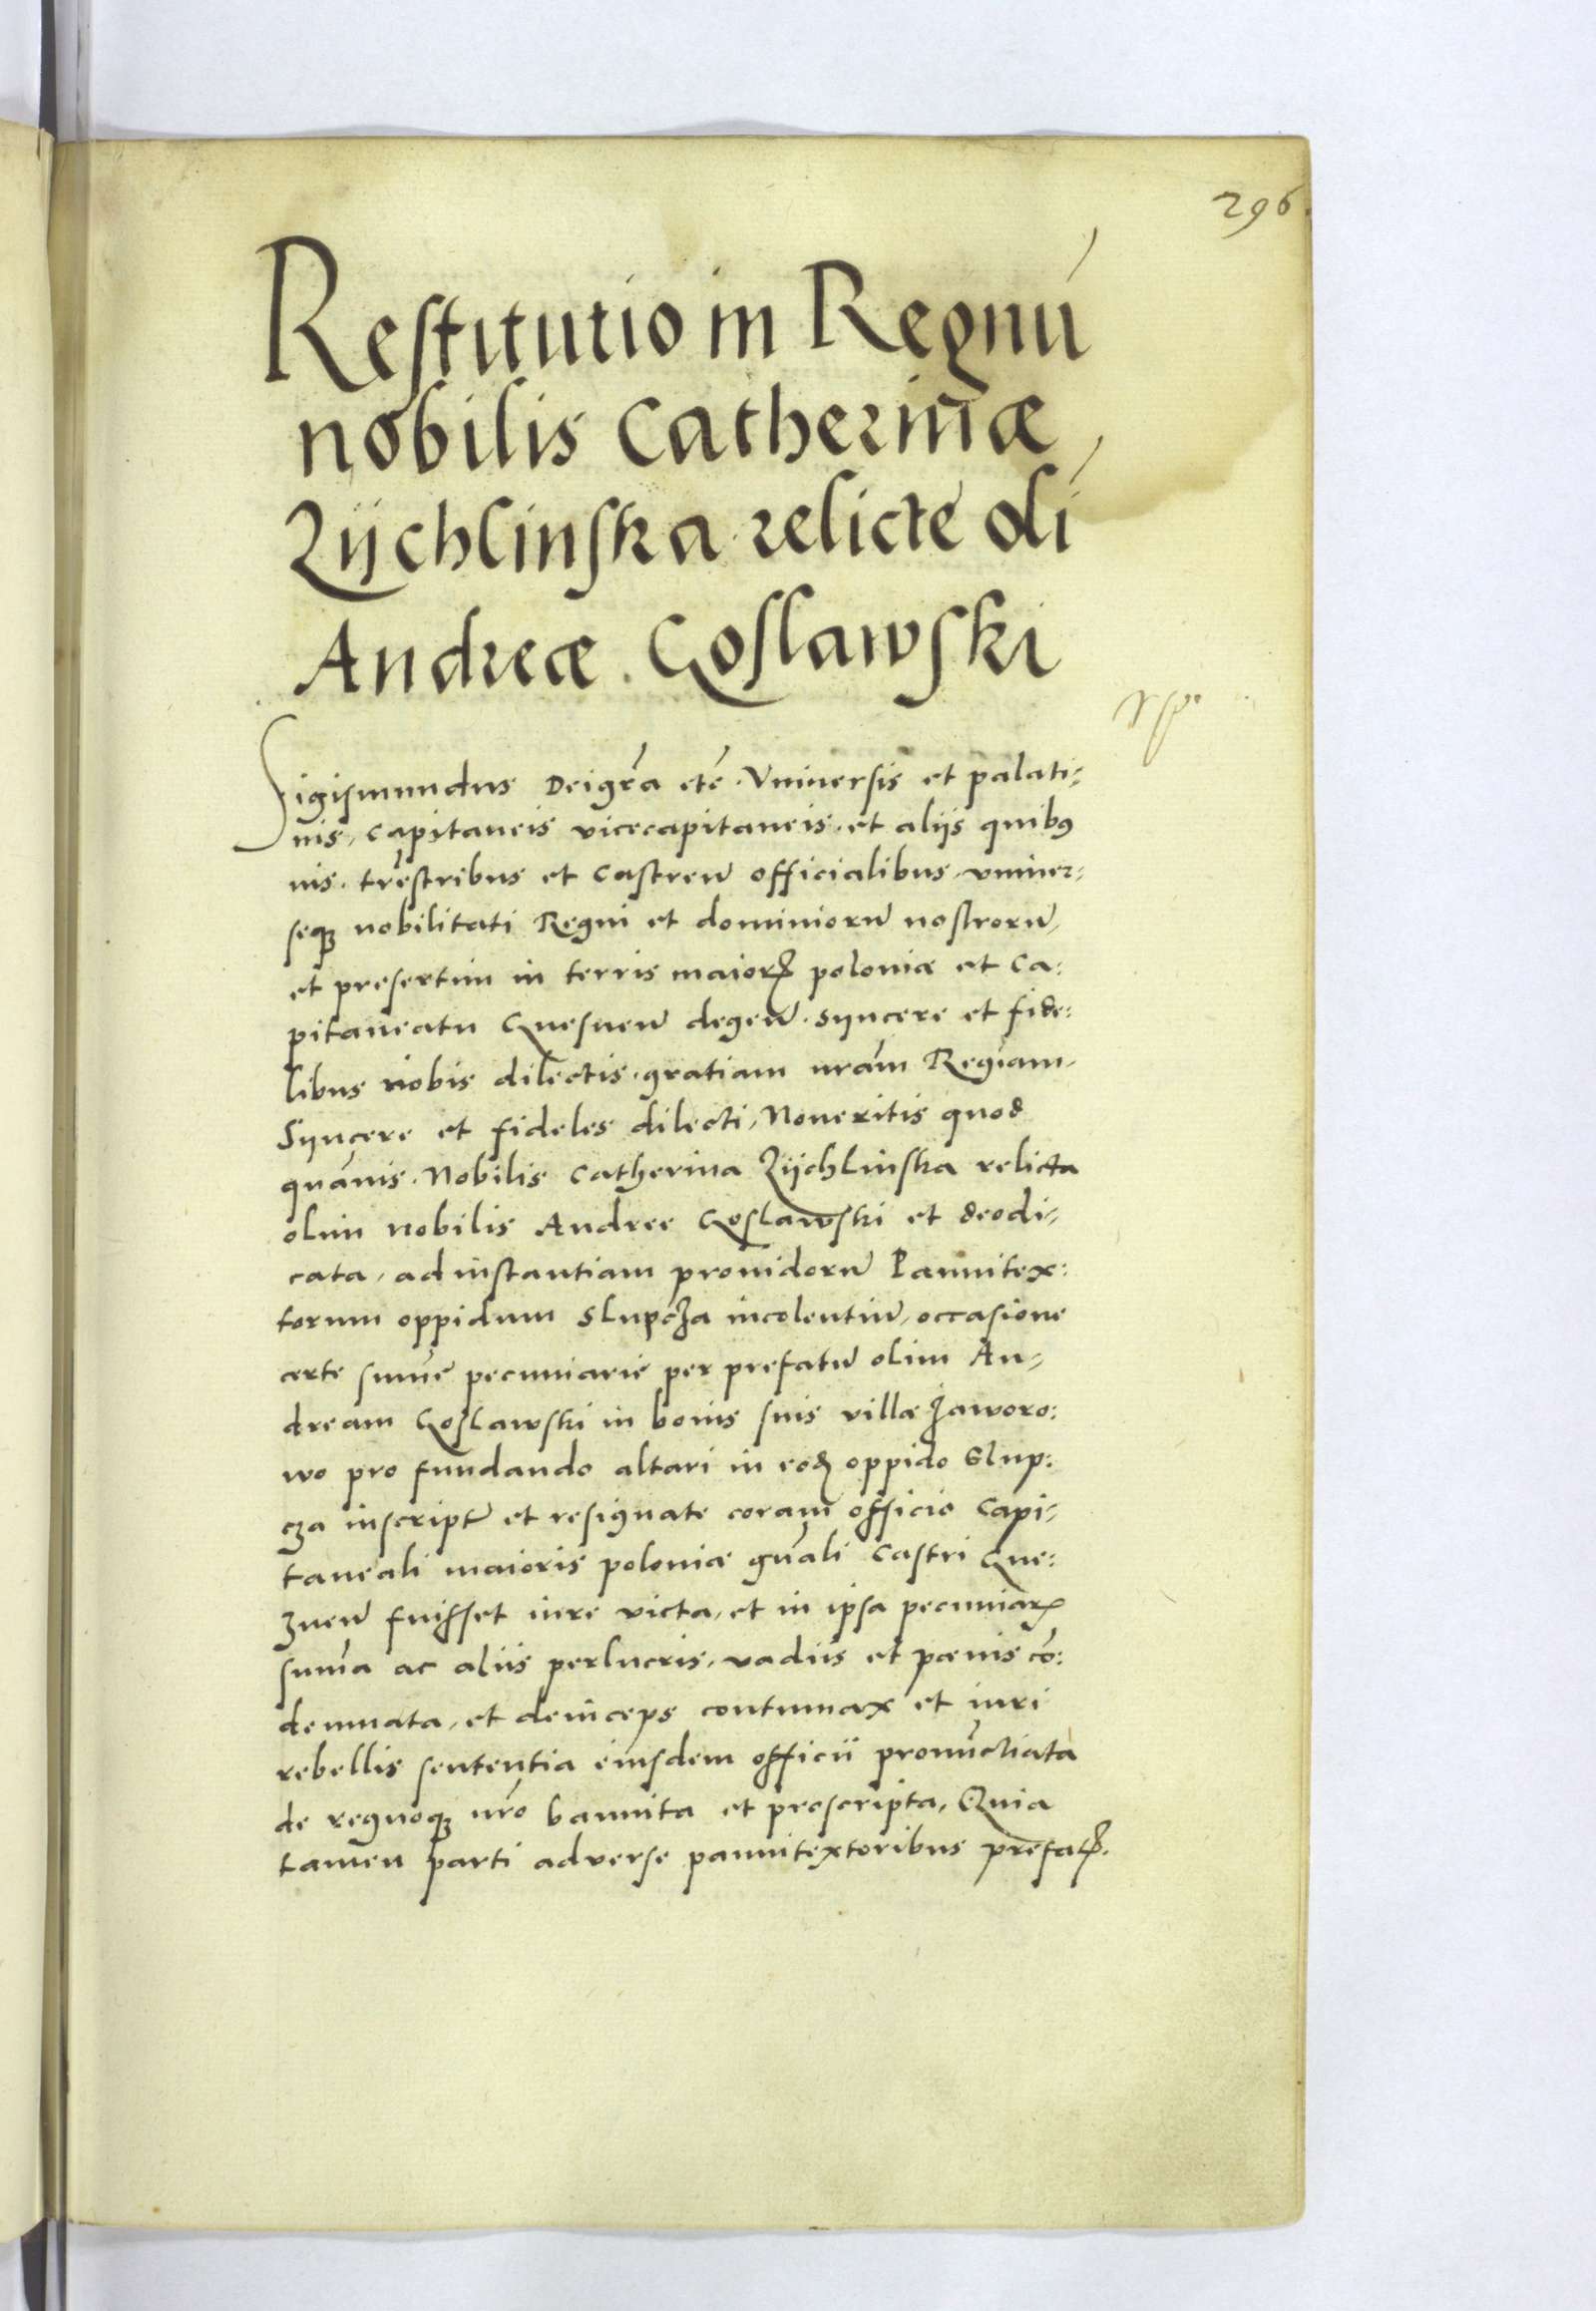 296.
Restitutio in Regnū
nobilis Catherinæ
Zÿchlinska relicte olī
Andreæ Goslawski
Sigismundus Dei gr̃a etc̃. Vniuersis et palati-
nis, capitaneis vicecapitaneis et aliis quibꝰ
uis. tr̃estribus et castren̄ officialibus vniuer-
seqꝫ nobilitati Regni et dominiorum̄ nostrorum̄,
et presertim in terris maiorꝭ poloniæ et Ca:
pitaneatu Gnesnen̄ degen̄. syncere et fide:
libus nobis dilectis. gratiam nr̃am Regiam.
Syncere et fideles dilecti, Noueritis quod
quāuis. Nobilis Catherina Zÿchlinska relicta
olim nobilis Andree Goslawski et deodi-
cata, ad instantiam prouidorum̄ Pannitex:
torum oppidum Slupcza incolentium̄, occasione
certe sum̄e pecuniarie per prefatum̄ olim An-
dream Goslawski in bonis suis villæ Jaworo:
wo pro fundando altari in eodꝫ oppido Slup:
cza inscript̃ et resignate coram officio Capi-
taneali maioris poloniæ gn̄ali Castri Gne:
znen̄ fuisset iure victa, et in ipsa pecuniarꝭ
sum̄a ac aliis perlucris, vadiis et pœnis cō:
demnata, et deinceps contumax et iuri
rebellis sententia eiusdem officii pronūctiata
de regnoqꝫ nr̃o bannita et proscripta, Quia
tamen parti aduerse pannitextoribus prefatꝭ.